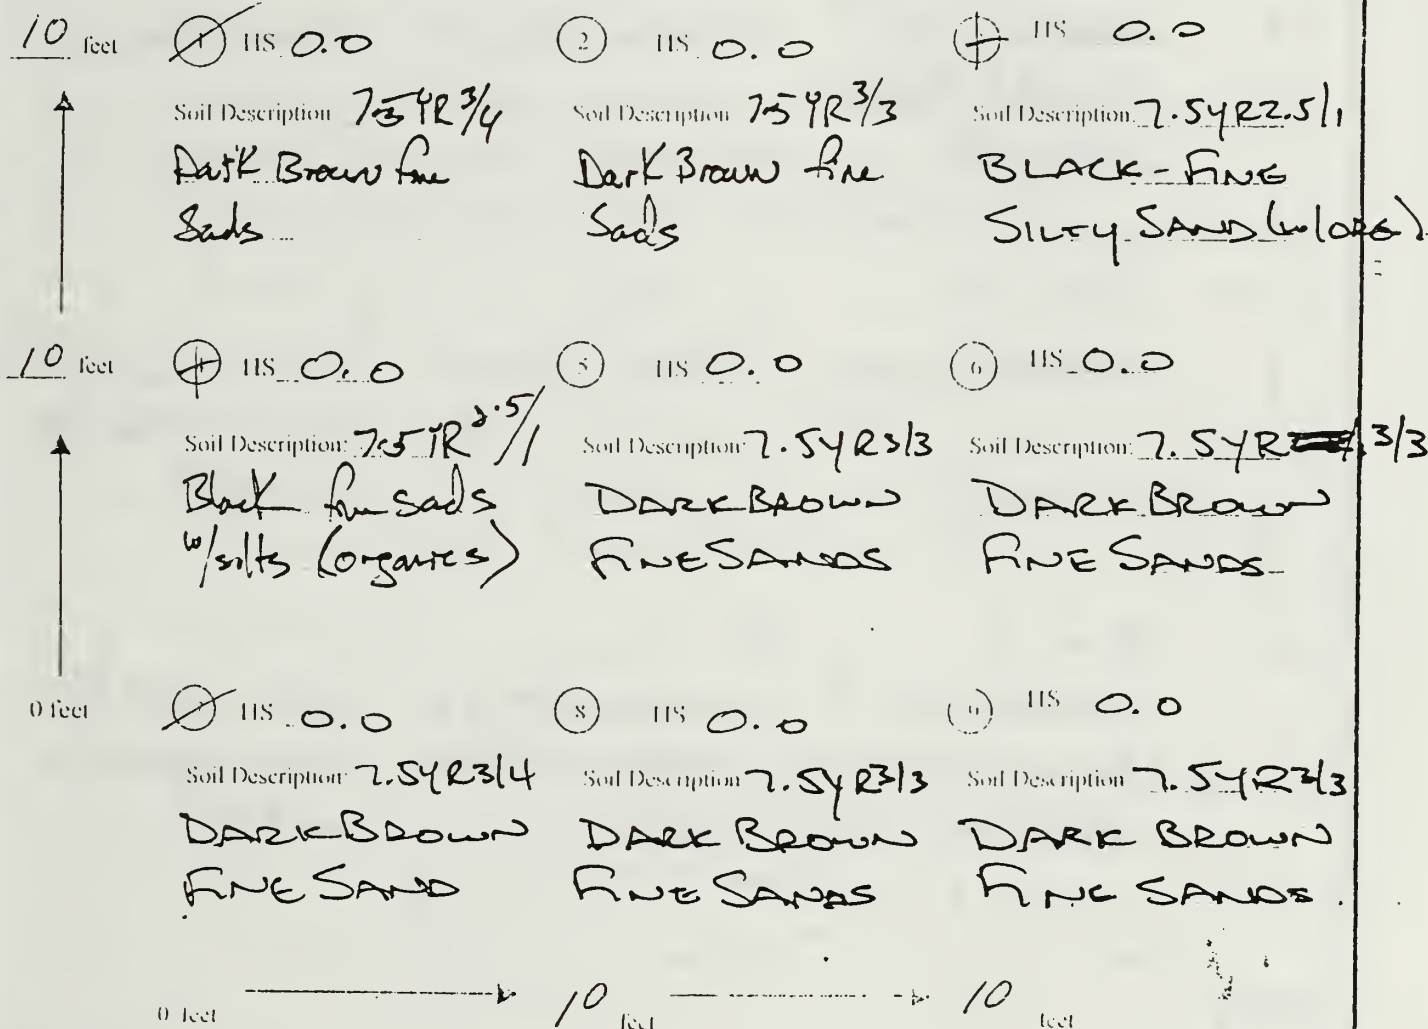 10 feet
1 HS 0.0
Soil Description 7.5YR 3/4
Dark Brown fine
Sads
2 HS 0.0
Soil Description 7.5YR 3/3
Dark Brown fine
Sads
HS 0.0
Soil Description: 7.5YR2.5/1
BLACK - FINE
SILTY SAND (w/ORG)
10 feet
HS 0.0
Soil Description: 7.5YR 2.5/1
Black fine sads
w/silts (organics)
5 HS 0.0
Soil Description: 7.5YR3/3
DARK BROWN
FINE SANDS
6 HS 0.0
Soil Description: 7.5YR 3/3
DARK BROWN
FINE SANDS
0 feet
HS 0.0
Soil Description: 7.5YR3/4
DARK BROWN
FINE SAND
8 HS 0.0
Soil Description 7.5YR3/3
DARK BROWN
FINE SANDS
9 HS 0.0
Soil Description 7.5YR3/3
DARK BROWN
FINE SANDS.
0 feet 10 feet 10 feet